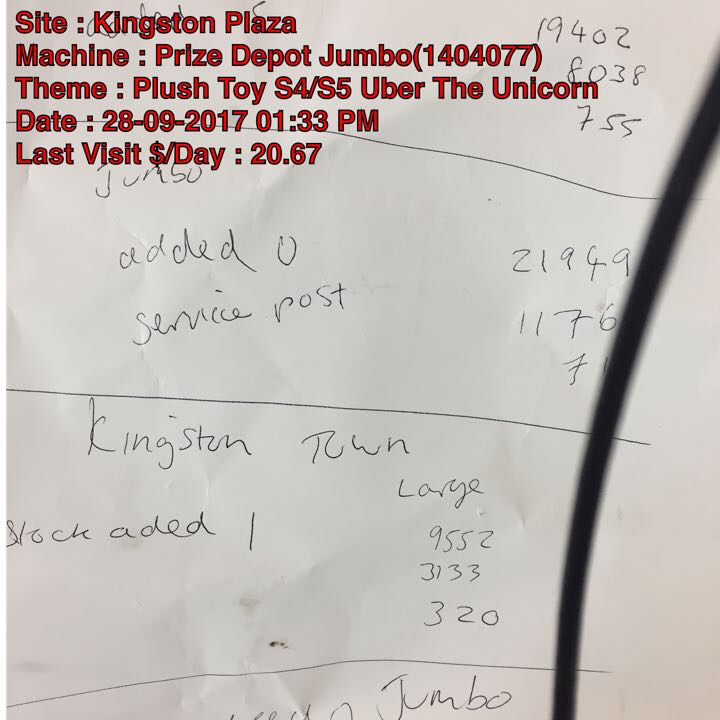 Site : Kingston Plaza
19402
Machine : Prize Depot Jumbo(1404077)
8038
Theme : Plush Toy S4/S5 Uber The Unicorn
Date : 28-09-2017 01:33 PM
755
Last Visit $/Day : 20.67
Jumbo
added 0
21949
service post
1176
71
Kingston Town
Large
Stock aded 1
9552
3133
320
Jumbo